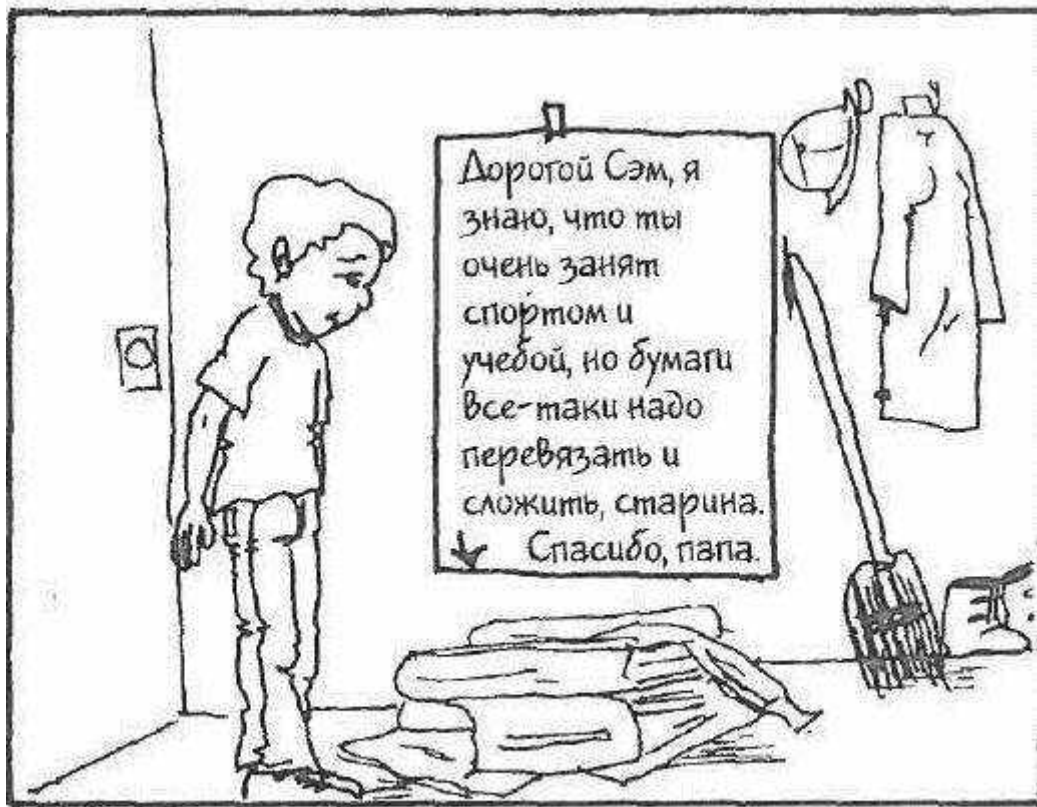 Дорогой Сэм, я
знаю, что ты
очень занят
спортом и
учебой, но бумаги
все-таки надо
перевязать и
сложить, старина.
Спасибо, папа.